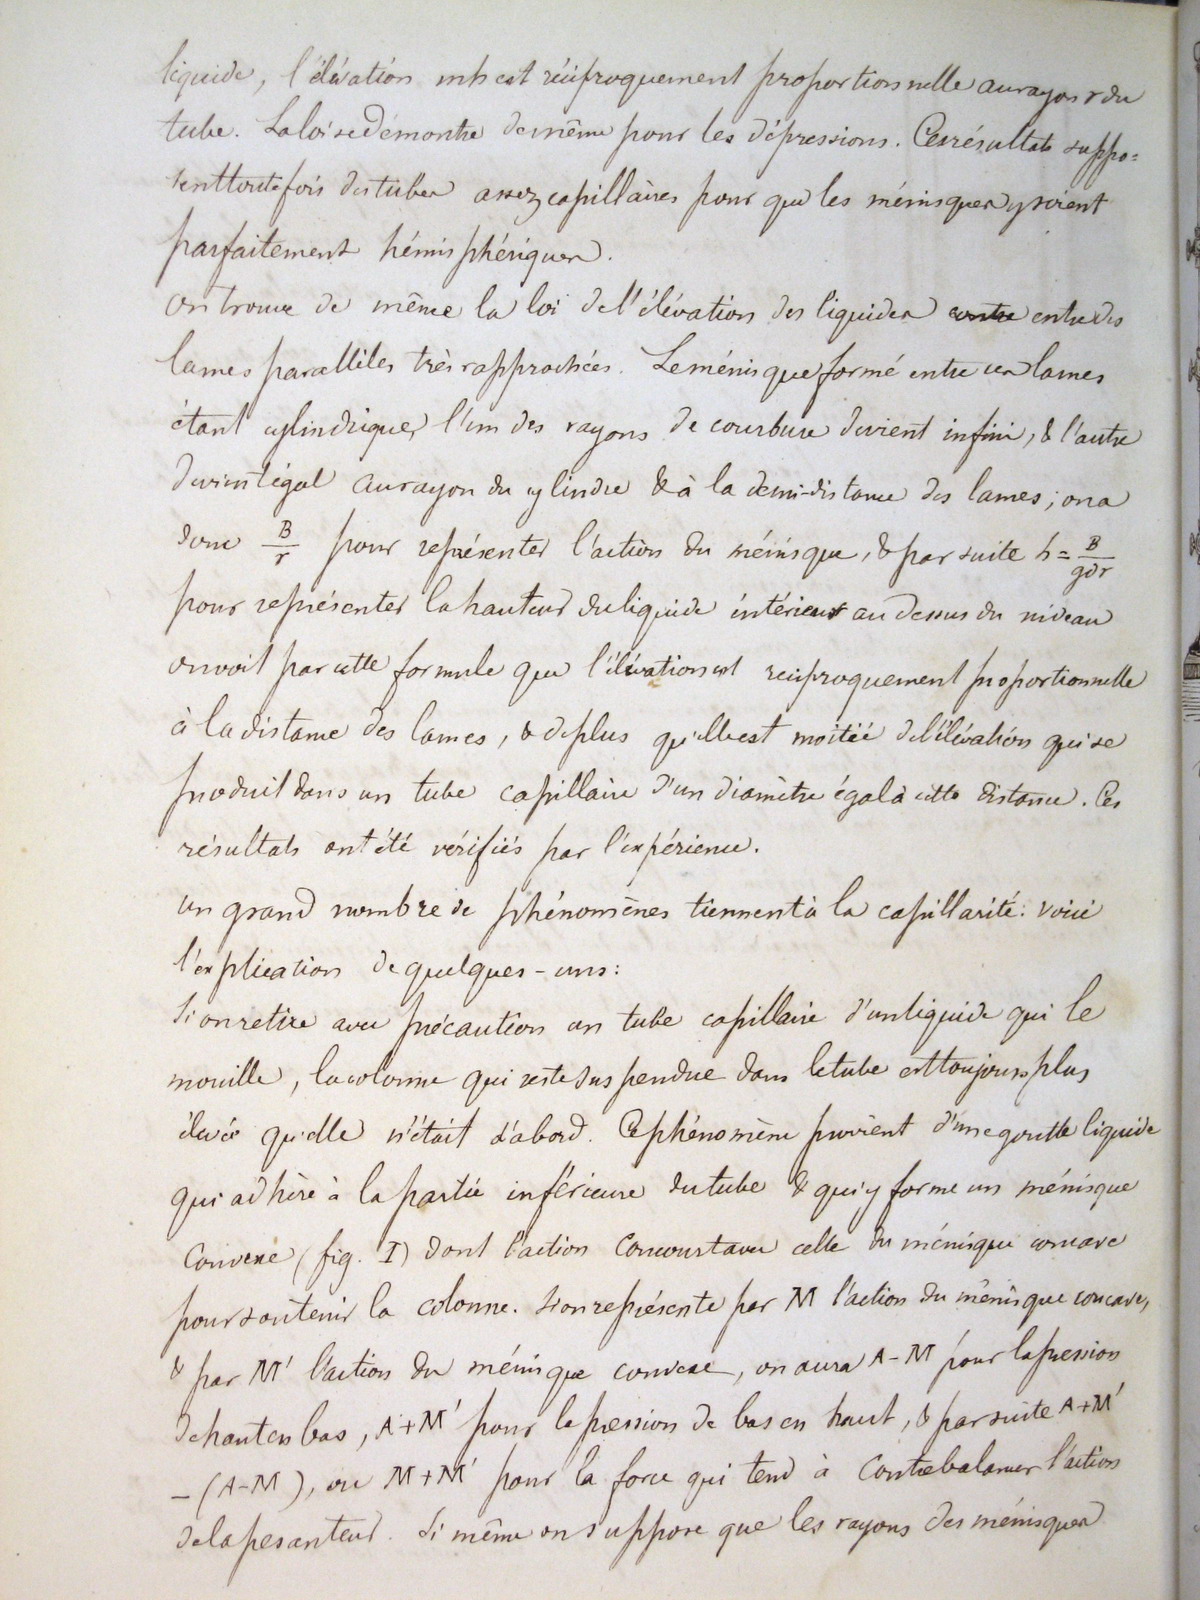 liquide, l'élévation mh est réciproquement proportionnelle au rayon r du
tube. La loi se démontre de même pour les dépressions. Ces résultats suppo=
sent toutefois des tubes assez capillaires pour que les ménisques y soient
parfaitement hémisphériques.
On trouve de même la loi de l'élévation des liquides contre entre des
lames parallèles très rapprochées. Le ménisque formé entre ces lames
étant cylindrique, l'un des rayons de courbure devient infini, & l'autre
devient égal au rayon du cylindre & à la demi-distance des lames; on a
donc B/r pour représenter l'action du ménisque, & par suite h = B/gdr
pour représenter la hauteur du liquide intérieur au dessus du niveau
on voit par cette formule que l'élévation est réciproquement proportionnelle
à la distance des lames, & de plus qu'elle est moitié de l'élévation qui se
produit dans un tube capillaire d'un diamètre égal à cette distance. Ces
résultats ont été vérifiés par l'expérience.
un grand nombre de phénomènes tiennent à la capillarité: voici
l'explication de quelques-uns:
Si on retire avec précaution un tube capillaire d'un liquide qui le
mouille, la colonne qui reste suspendue dans le tube est toujours plus
élevée qu'elle n'était d'abord. Ce phénomène provient d'une goutte liquide
qui adhère à la partie inférieure du tube & qui y forme un ménisque
convexe (fig. I) dont l'action concourt avec celle du ménisque concave
pour soutenir la colonne. Si on représente par M l'action du ménisque concave,
& par M' l'action du ménisque convexe, on aura A-M pour la pression
de haut en bas, A+M' pour la pression de bas en haut, & par suite A+M'
-(A-M), ou M+M' pour la force qui tend à contrebalancer l'action
de la pesanteur. Si même on suppose que les rayons des ménisques